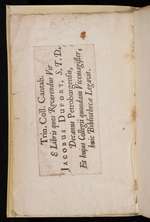 Trin. Coll. Cantab.
E Libris quos Reverendus Vir
JACOBUS DUPORT, S.T.D.
Decanus Petroburgensis,
Et hujus Collegii quondam Vicemagister,
huic Bibliothecæ Legavit.